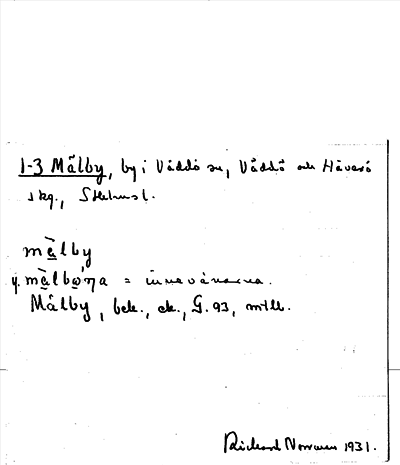 1-3 Målby, by i Väddö sn, Väddö och Häverö
skg., Sthlms l.
màlby
y. màlbωηa = invånarna.
Målby, bek., ek., G. 93, mtlb.
Richard Norrman 1931.